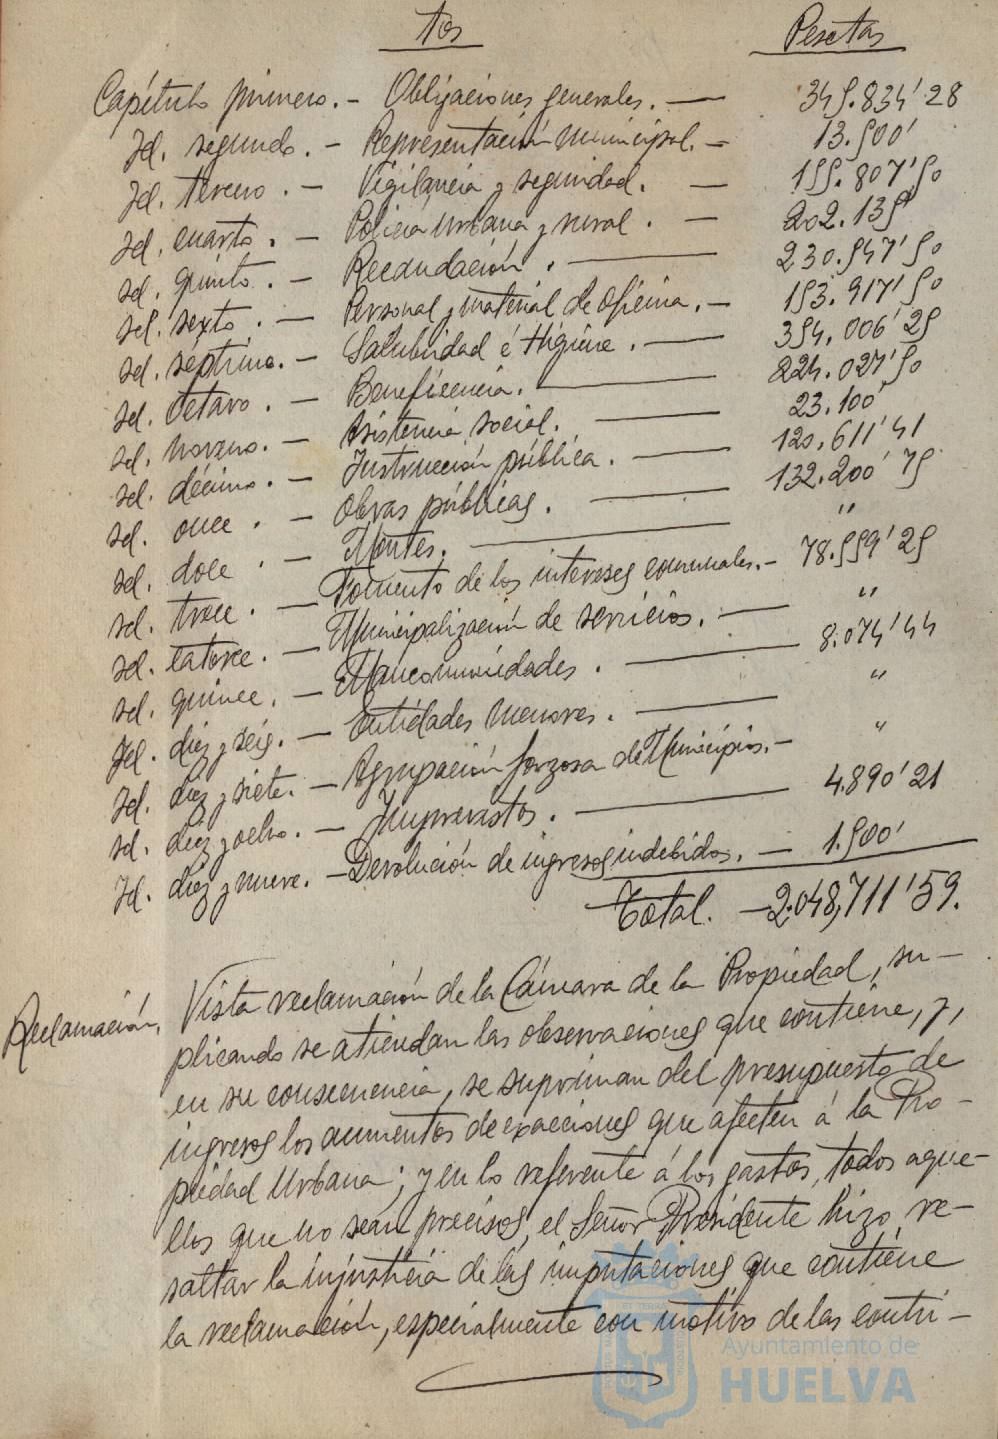 tos Pesetas
Capítulo primero. - Obligaciones generales. — 345.834'28
Id. segundo. - Representación municipal. - 13.500'
Id. tercero. - Vigilancia y seguridad. — 155.807'50
Id. cuarto. - Policía Urbana y rural. — 202.135'
Id. quinto. - Recaudación. — 230.547'50
Id. sexto. - Personal y material de oficina. - 153.917'50
Id. séptimo. - Salubridad é Higiene. — 354.006'25
Id. octavo. - Beneficencia. — 224.027'50
Id. noveno. - Asistencia social. — 23.100'
Id. décimo. - Instrucción pública. — 120.611'41
Id. once. - Obras públicas. — 132.200'75
Id. doce. - Montes. — "
Id. trece. - Fomento de los intereses comunales. - 78.559'25
Id. catorce. - Municipalización de servicios. — "
Id. quince. - Mancomunidades. — 8.074'44
Id. diez y seis. - Entidades menores. — "
Id. diez y siete. - Agrupación forzosa de Municipios. - "
Id. diez y ocho. - Imprevistos. — 4.890'21
Id. diez y nueve. - Devolución de ingresos indebidos. — 1.500'
Total. - 2.048,711'59.
Reclamación.
Vista reclamación de la Cámara de la Propiedad, su-
plicando se atiendan las observaciones que contiene, y,
en su consecuencia, se supriman del presupuesto de
ingresos los aumentos de exacciones que afecten á la Pro-
piedad Urbana; y en lo referente á los gastos, todos aque-
llos que no sean precisos, el Señor Presidente hizo re-
saltar la injusticia de las imputaciones que contiene
la reclamación, especialmente con motivo de las contri-
Ayuntamiento de
HUELVA